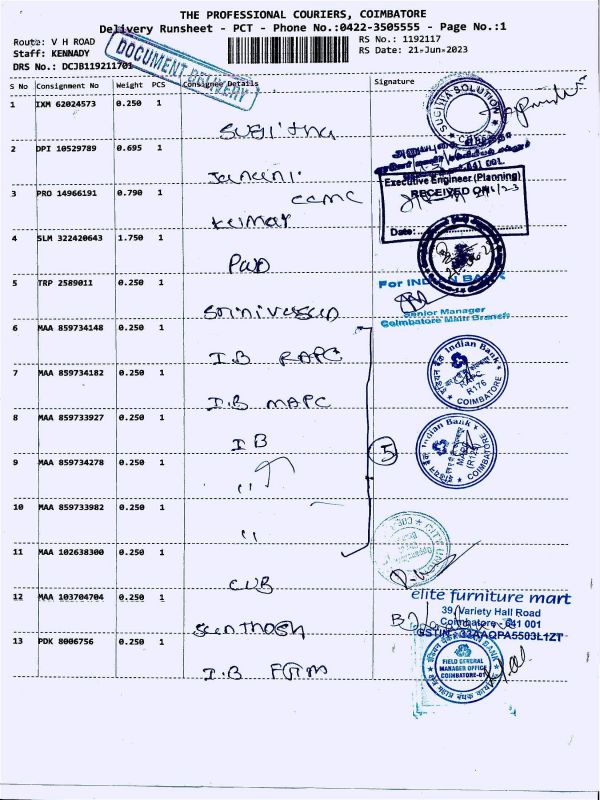 THE PROFESSIONAL COURIERS, COIMBATORE
Delivery Runsheet - PCT - Phone No.:0422-3505555 - Page No.:1
Route: V H ROAD
RS No.: 1192117
Staff: KENNADY
RS Date: 21-Jun-2023
DRS No.: DCJB119211701
DOCUMENT DELIVERY
S No Consignment No Weight PCS Consignee Details Signature
1 IXM 62024573 0.250 1
Sugitha
SUGITHA SOLUTION
2 DPI 10529789 0.695 1
Janani
3 PRO 14966191 0.790 1
ccmc
Kumar
Executive Engineer (Planning)
RECEIVED ON
Date:
4 SLM 322420643 1.750 1
PWD
5 TRP 2589011 0.250 1
Srinivasan
For INDIAN BANK
Senior Manager
Coimbatore Main Branch
6 MAA 859734148 0.250 1
I.B RAPC
Indian Bank
RAPC
R176
COIMBATORE
7 MAA 859734182 0.250 1
I.B MAPC
8 MAA 859733927 0.250 1
IB
Indian Bank
COIMBATORE
5
9 MAA 859734278 0.250 1
"
10 MAA 859733982 0.250 1
"
11 MAA 102638300 0.250 1
CUB
12 MAA 103704704 0.250 1
Santhosh
elite furniture mart
39, Variety Hall Road
Coimbatore - 641 001
GSTIN: 33AAQPA5503L1ZT
13 PDK 8006756 0.250 1
I.B FGM
INDIAN BANK
FIELD GENERAL
MANAGER OFFICE
COIMBATORE-01